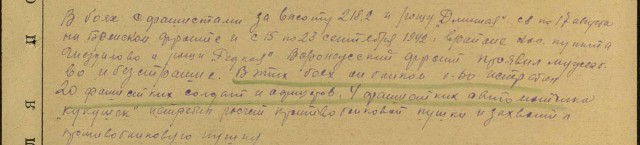 В боях с фашистами за высоту 218.2 и рощу "Длинная" с 8 по 17 августа
на фронте и с 15 по 23 сентября 1942 г. в районе нас. пункта
и рощи "Редкая" Воронежский фронт проявил мужест-
во и бесстрашие. В этих боях он в-во истребил
20 фашистских солдат и офицеров. 4 фашистских автоматчика
"кукушек" истребил расчет противотанковой пушки и захватил
противотанковую пушку
Л Я